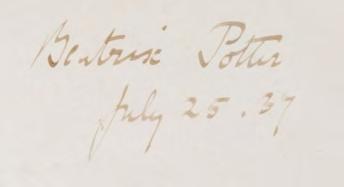 Beatrix Potter
July 25. 37